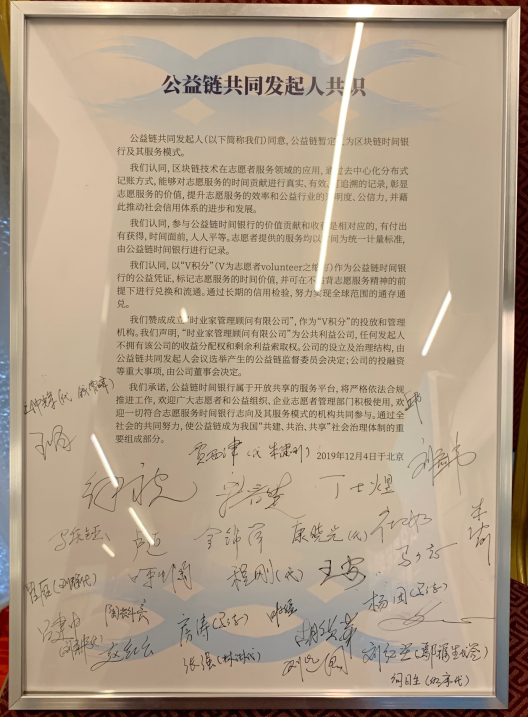 公益链共同发起人共识
公益链共同发起人(以下简称我们)同意,公益链暂定为区块链时间银
行及其服务模式。
我们认同,区块链技术在志愿者服务领域的应用,通过去中心化分布式
记账方式,能够对志愿服务的时间贡献进行真实、有效、可追溯的记录,彰显
志愿服务的价值,提升志愿服务的效率和公益行业的透明度、公信力,并藉
此推动社会信用体系的进步和发展。
我们认同,参与公益链时间银行的价值贡献和收益是相对应的,有付出
有获得,时间面前,人人平等。志愿者提供的服务均以时间为统一计量标准,
由公益链时间银行进行记录。
我们认同,以“V积分”(V为志愿者volunteer之缩写)作为公益链时间银
行的公益凭证,标记志愿服务的时间价值,并可在不违背志愿服务精神的前
提下进行兑换和流通。通过长期的信用检验,努力实现全球范围的通存通
兑。
我们赞成成立“时业家管理顾问有限公司”,作为“V积分”的投放和管理
机构。我们声明,“时业家管理顾问有限公司”为公共利益公司,任何发起人
不拥有该公司的收益分配权和剩余利益索取权。公司的设立及治理结构,由
公益链共同发起人会议选举产生的公益链监督委员会决定;公司的投融资
等重大事项,由公司董事会决定。
我们承诺,公益链时间银行属于开放共享的服务平台,将严格依法合规
推进工作,欢迎广大志愿者和公益组织、企业志愿者管理部门积极使用,欢
迎一切符合志愿服务时间银行志向及其服务模式的机构共同参与。通过全
社会的共同努力,使公益链成为我国“共建、共治、共享”社会治理体制的重
要组成部分。
2019年12月4日于北京
贾西津
丁士煜
康晓光(代)
程刚(代)
王安
杨团
赵红云
房涛
张强